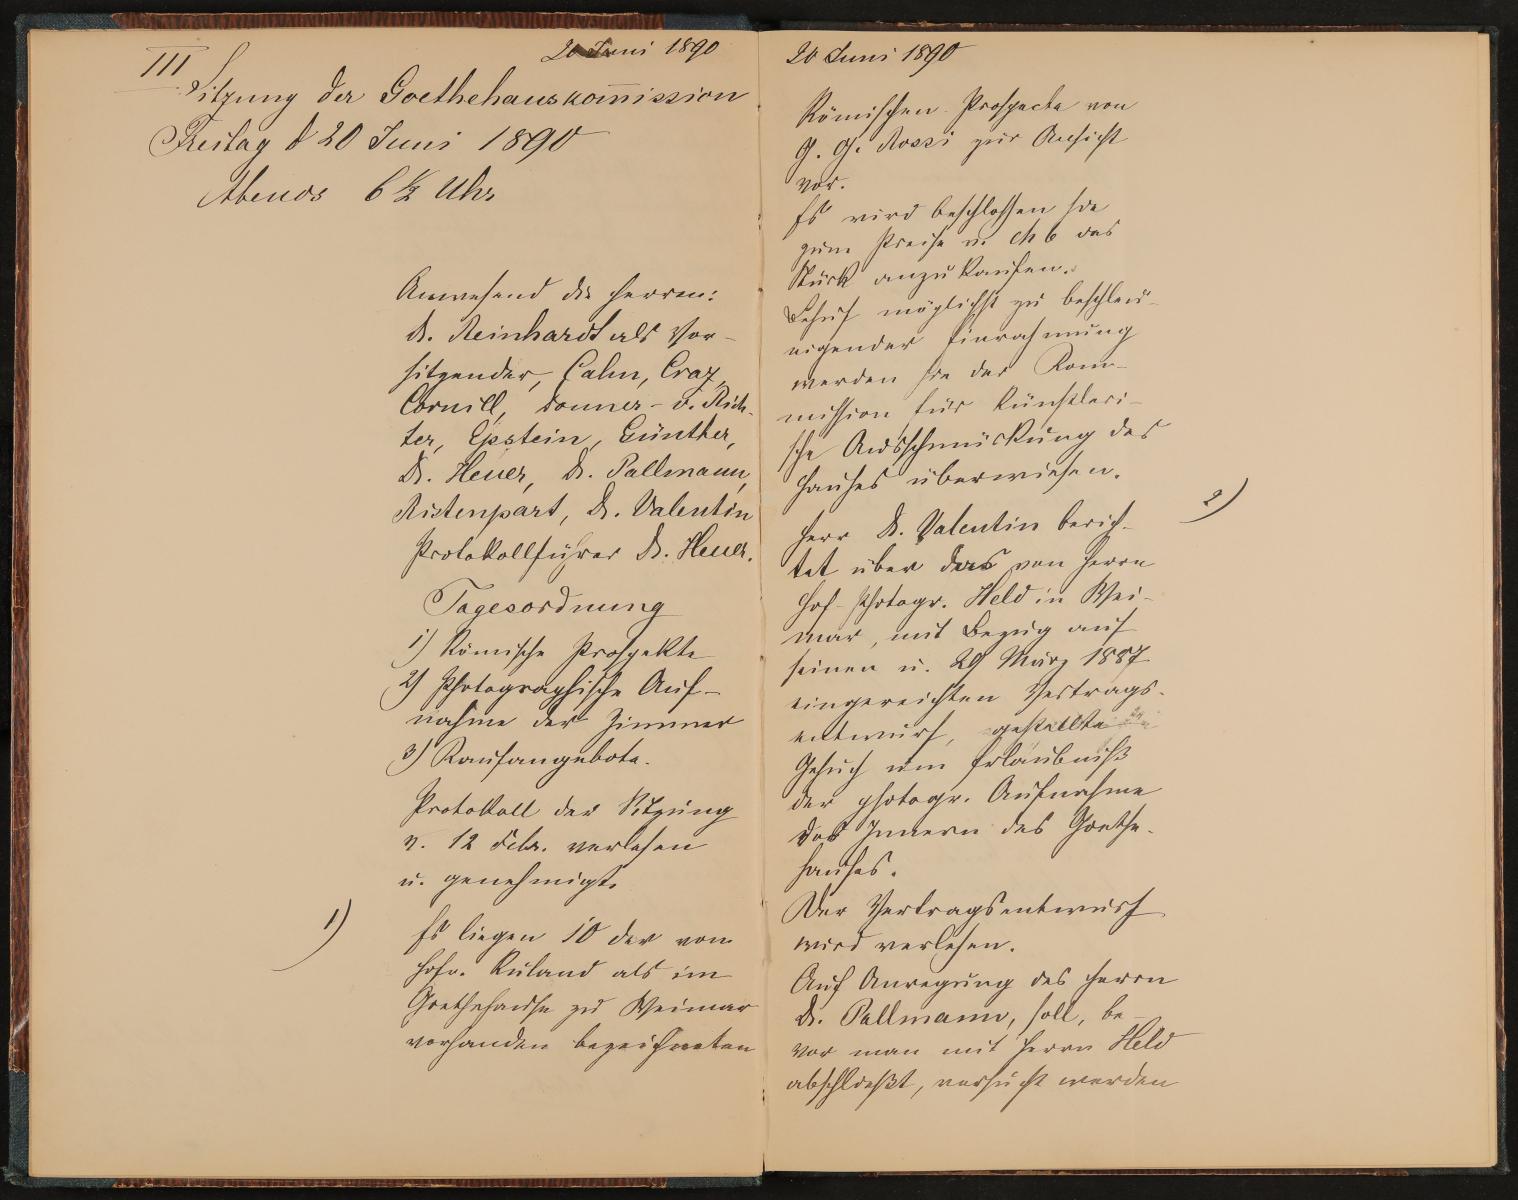 20 Juni 1890
III
Sitzung der Goethehauskom̄ission
Freitag d 20 Juni 1890
Abends 6 ½ Uhr
Anwesend die Herren:
Dr. Reinhardt als Vor-
sitzender, Cahn, Craz,
Cornill, Donner - v. Rich-
ter, Epstein, Günther,
Dr. Heuer, Dr. Pallmann,
Ristenpart, Dr. Valentin
Protokollführer Dr. Heuer.
Tagesordnung
1) Römische Prospekte
2) Photographische Auf-
nahme der Zimmer
3) Kaufangebote.
Protokoll der Sitzung
v. 12 Febr. verlesen
u. genehmigt.
1)
Es liegen 10 der von
Hofr. Ruland als im
Goethehause zu Weimar
vorhanden bezeichneten
20 Juni 1890
Römischen Prospecte von
G. G. Rossi zur Ansicht
vor.
Es wird beschlossen sie
zum Preise v. M 6 das
Stück anzukaufen.
Behuf möglichst zu beschleu-
nigender Einrahmung
werden sie der Kom-
mission für künstleri-
sche Ausschmückung des
Hauses überwiesen.
2)
Herr Dr. Valentin berich-
tet über das von Herrn
Hof-Photogr. Held in Wei-
mar, mit Bezug auf
seinen u. 29 März 1887
eingereichten Vertrags-
entwurf, gestellte
Gesuch um Erlaubniß
der photogr. Aufnahme
des Innern des Goethe-
hauses.
Der Vertragsentwurf
wird verlesen.
Auf Anregung des Herrn
Dr. Pallmann, soll, be-
vor man mit Herrn Held
abschließt, versucht werden